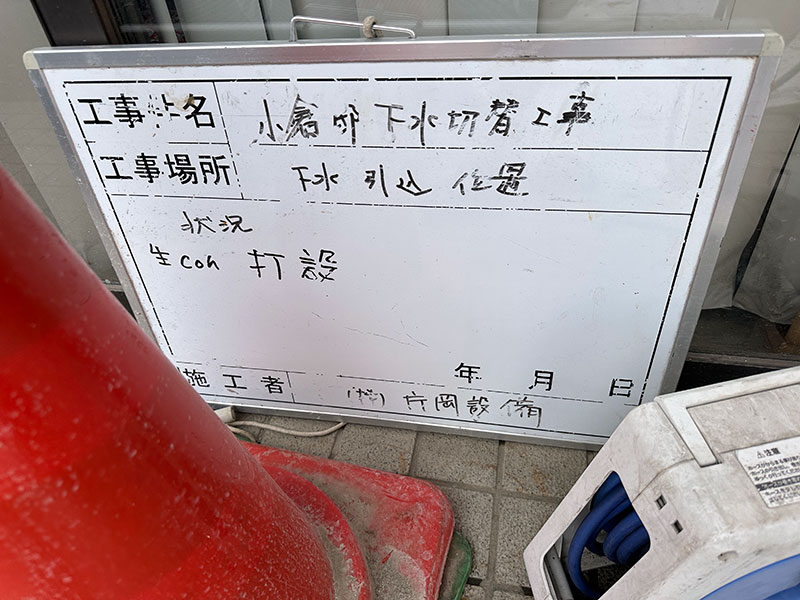 工事件名 小倉邸 下水切替工事
工事場所 下水 引込 位置
状況
生con 打設
年 月 日
施工者 (株) 片岡設備
⚠注意